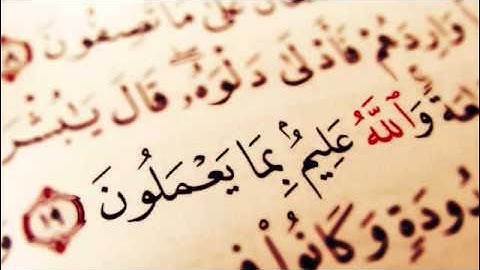 عَلَىٰ مَا تَصِفُونَ
وَارِدَهُمْ فَأَدْلَىٰ دَلْوَهُۥ ۖ قَالَ يَٰبُشْرَ
عَةً ۚ وَٱللَّهُ عَلِيمٌۢ بِمَا يَعْمَلُونَ ١٩
دُودَةٍ وَكَانُوا۟ فِ